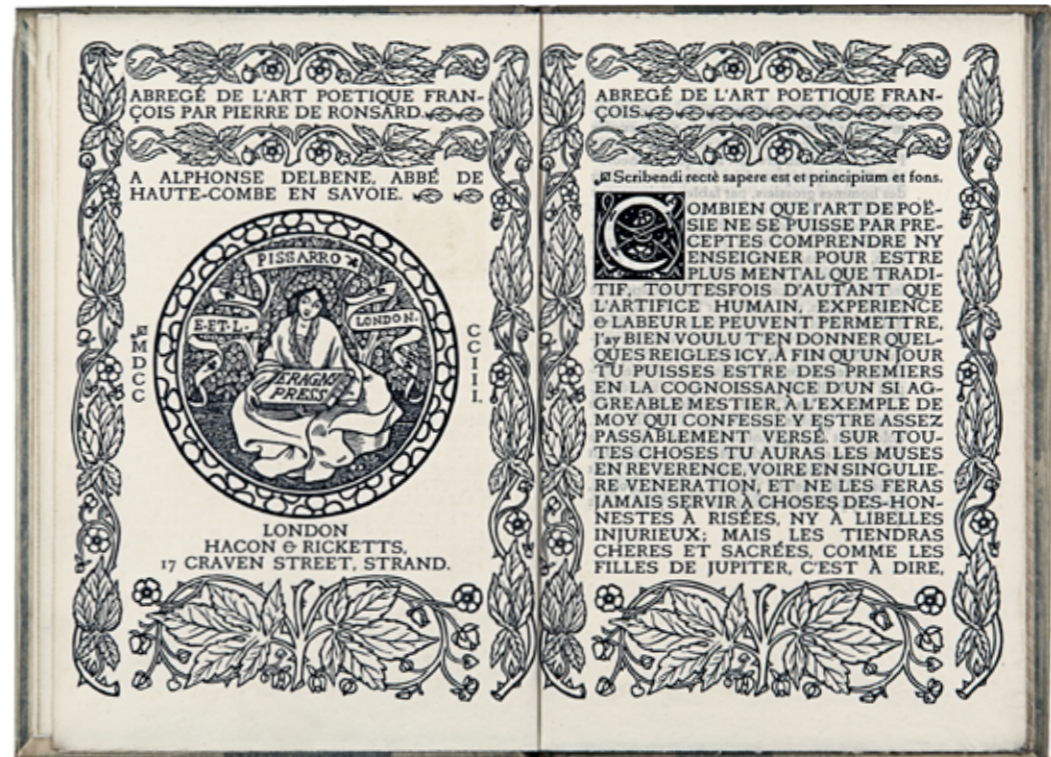 ABREGÉ DE L'ART POETIQUE FRAN-
ÇOIS PAR PIERRE DE RONSARD.
A ALPHONSE DELBENE, ABBÉ DE
HAUTE-COMBE EN SAVOIE.
PISSARRO
E·ET·L·
LONDON.
ERAGNY
PRESS
MDCC
CCIII.
LONDON
HACON & RICKETTS,
17 CRAVEN STREET, STRAND.
ABREGÉ DE L'ART POETIQUE FRAN-
ÇOIS.
Scribendi rectè sapere est et principium et fons.
COMBIEN QUE l'ART DE POË-
SIE NE SE PUISSE PAR PRE-
CEPTES COMPRENDRE NY
ENSEIGNER POUR ESTRE
PLUS MENTAL QUE TRADI-
TIF, TOUTESFOIS D'AUTANT QUE
L'ARTIFICE HUMAIN, EXPERIENCE
& LABEUR LE PEUVENT PERMETTRE,
j'ay BIEN VOULU T'EN DONNER QUEL-
QUES REIGLES ICY, À FIN QU'UN JOUR
TU PUISSES ESTRE DES PREMIERS
EN LA COGNOISSANCE D'UN SI AG-
GREABLE MESTIER, À L'EXEMPLE DE
MOY QUI CONFESSE Y ESTRE ASSEZ
PASSABLEMENT VERSÉ. SUR TOU-
TES CHOSES TU AURAS LES MUSES
EN REVERENCE, VOIRE EN SINGULIE-
RE VENERATION, ET NE LES FERAS
JAMAIS SERVIR À CHOSES DES-HON-
NESTES À RISÉES, NY À LIBELLES
INJURIEUX; MAIS LES TIENDRAS
CHERES ET SACRÉES, COMME LES
FILLES DE JUPITER, C'EST À DIRE,